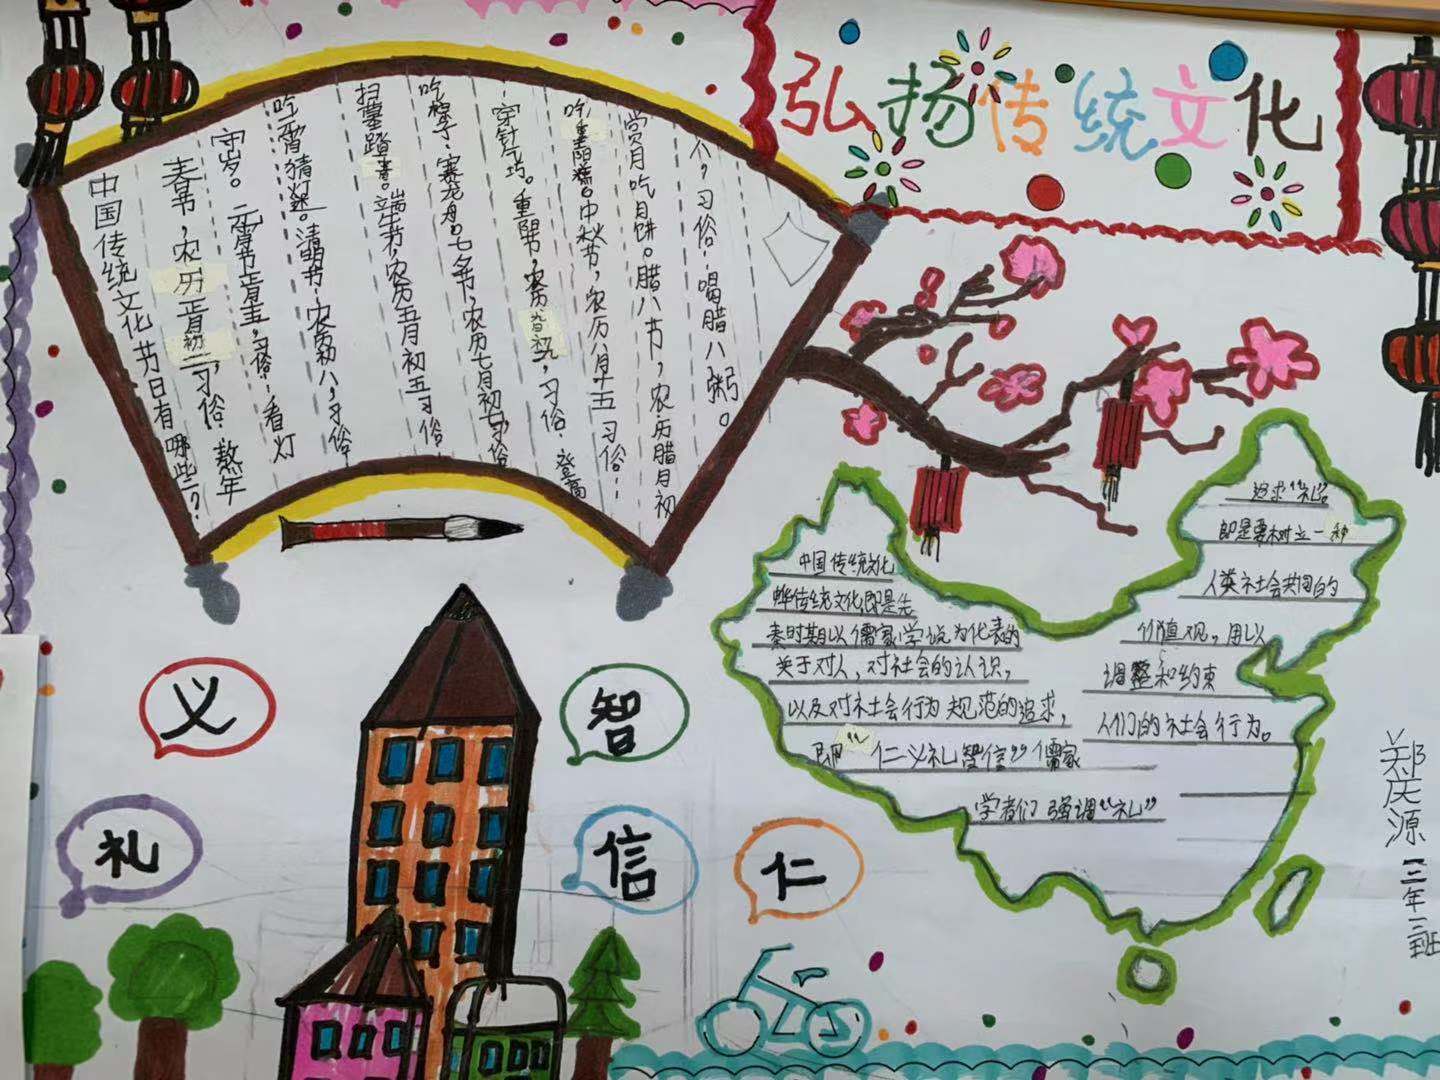 弘扬传统文化
中国传统文化节日有哪些?
春节,农历正月初一,习俗:熬年
守岁。元宵节正月十五,习俗:看灯
吃元宵猜灯迷。清明节:农历初八,习俗
扫墓踏青。端午节,农历五月初五习俗
吃粽子、赛龙舟。七夕节,农历七月初七习俗
穿针乞巧。重阳节,农历九月初九,习俗:登高
吃重阳糕。中秋节,农历八月十五习俗:
赏月吃月饼。腊八节,农历腊月初
八,习俗:喝腊八粥。
中国传统文化
传统文化即是先
秦时期以儒家学说为代表的
关于对人,对社会的认识,
以及对社会行为规范的追求,
即“仁义礼智信”儒家
学者们强调“礼”
追求“礼”。
即是要树立一种
人类社会共同的
价值观,用以
调整和约束
人们的社会行为。
义
智
礼
信
仁
郑庆源 三年二班